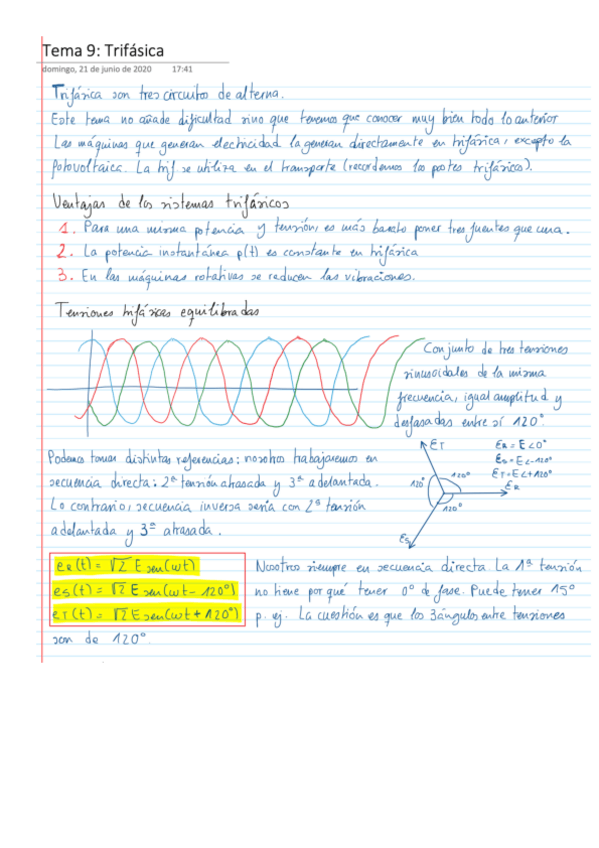 Tema 9: Trifásica
domingo, 21 de junio de 2020 17:41
Trifásica son tres circuitos de alterna.
Este tema no añade dificultad sino que tenemos que conocer muy bien todo lo anterior
Las máquinas que generan electricidad la generan directamente en trifásica, excepto la
fotovoltaica. La trif se utiliza en el transporte (recordemos los postes trifásicos).
Ventajas de los sistemas trifásicos
1. Para una misma potencia y tensión, es más barato poner tres fuentes que una.
2. La potencia instantánea p(t) es constante en trifásica
3. En las máquinas rotativas se reducen las vibraciones.
Tensiones trifásicas equilibradas
Conjunto de tres tensiones
sinusoidales de la misma
frecuencia, igual amplitud y
desfasadas entre sí 120°
Podemos tomar distintas referencias: nosotros trabajaremos en
secuencia directa: 2ª tensión atrasada y 3ª adelantada.
Lo contrario, secuencia inversa sería con 2ª tensión
adelantada y 3ª atrasada.
ET
ER = E∠0°
ES = E∠-120°
ET = E∠+120°
120°
120°
ER
120°
ES
eR(t) = √2 E sen(ωt)
eS(t) = √2 E sen(ωt - 120°)
eT(t) = √2 E sen(ωt + 120°)
Nosotros siempre en secuencia directa. La 1ª tensión
no tiene por qué tener 0° de fase. Puede tener 15°
p. ej. La cuestión es que los 3 ángulos entre tensiones
son de 120°.